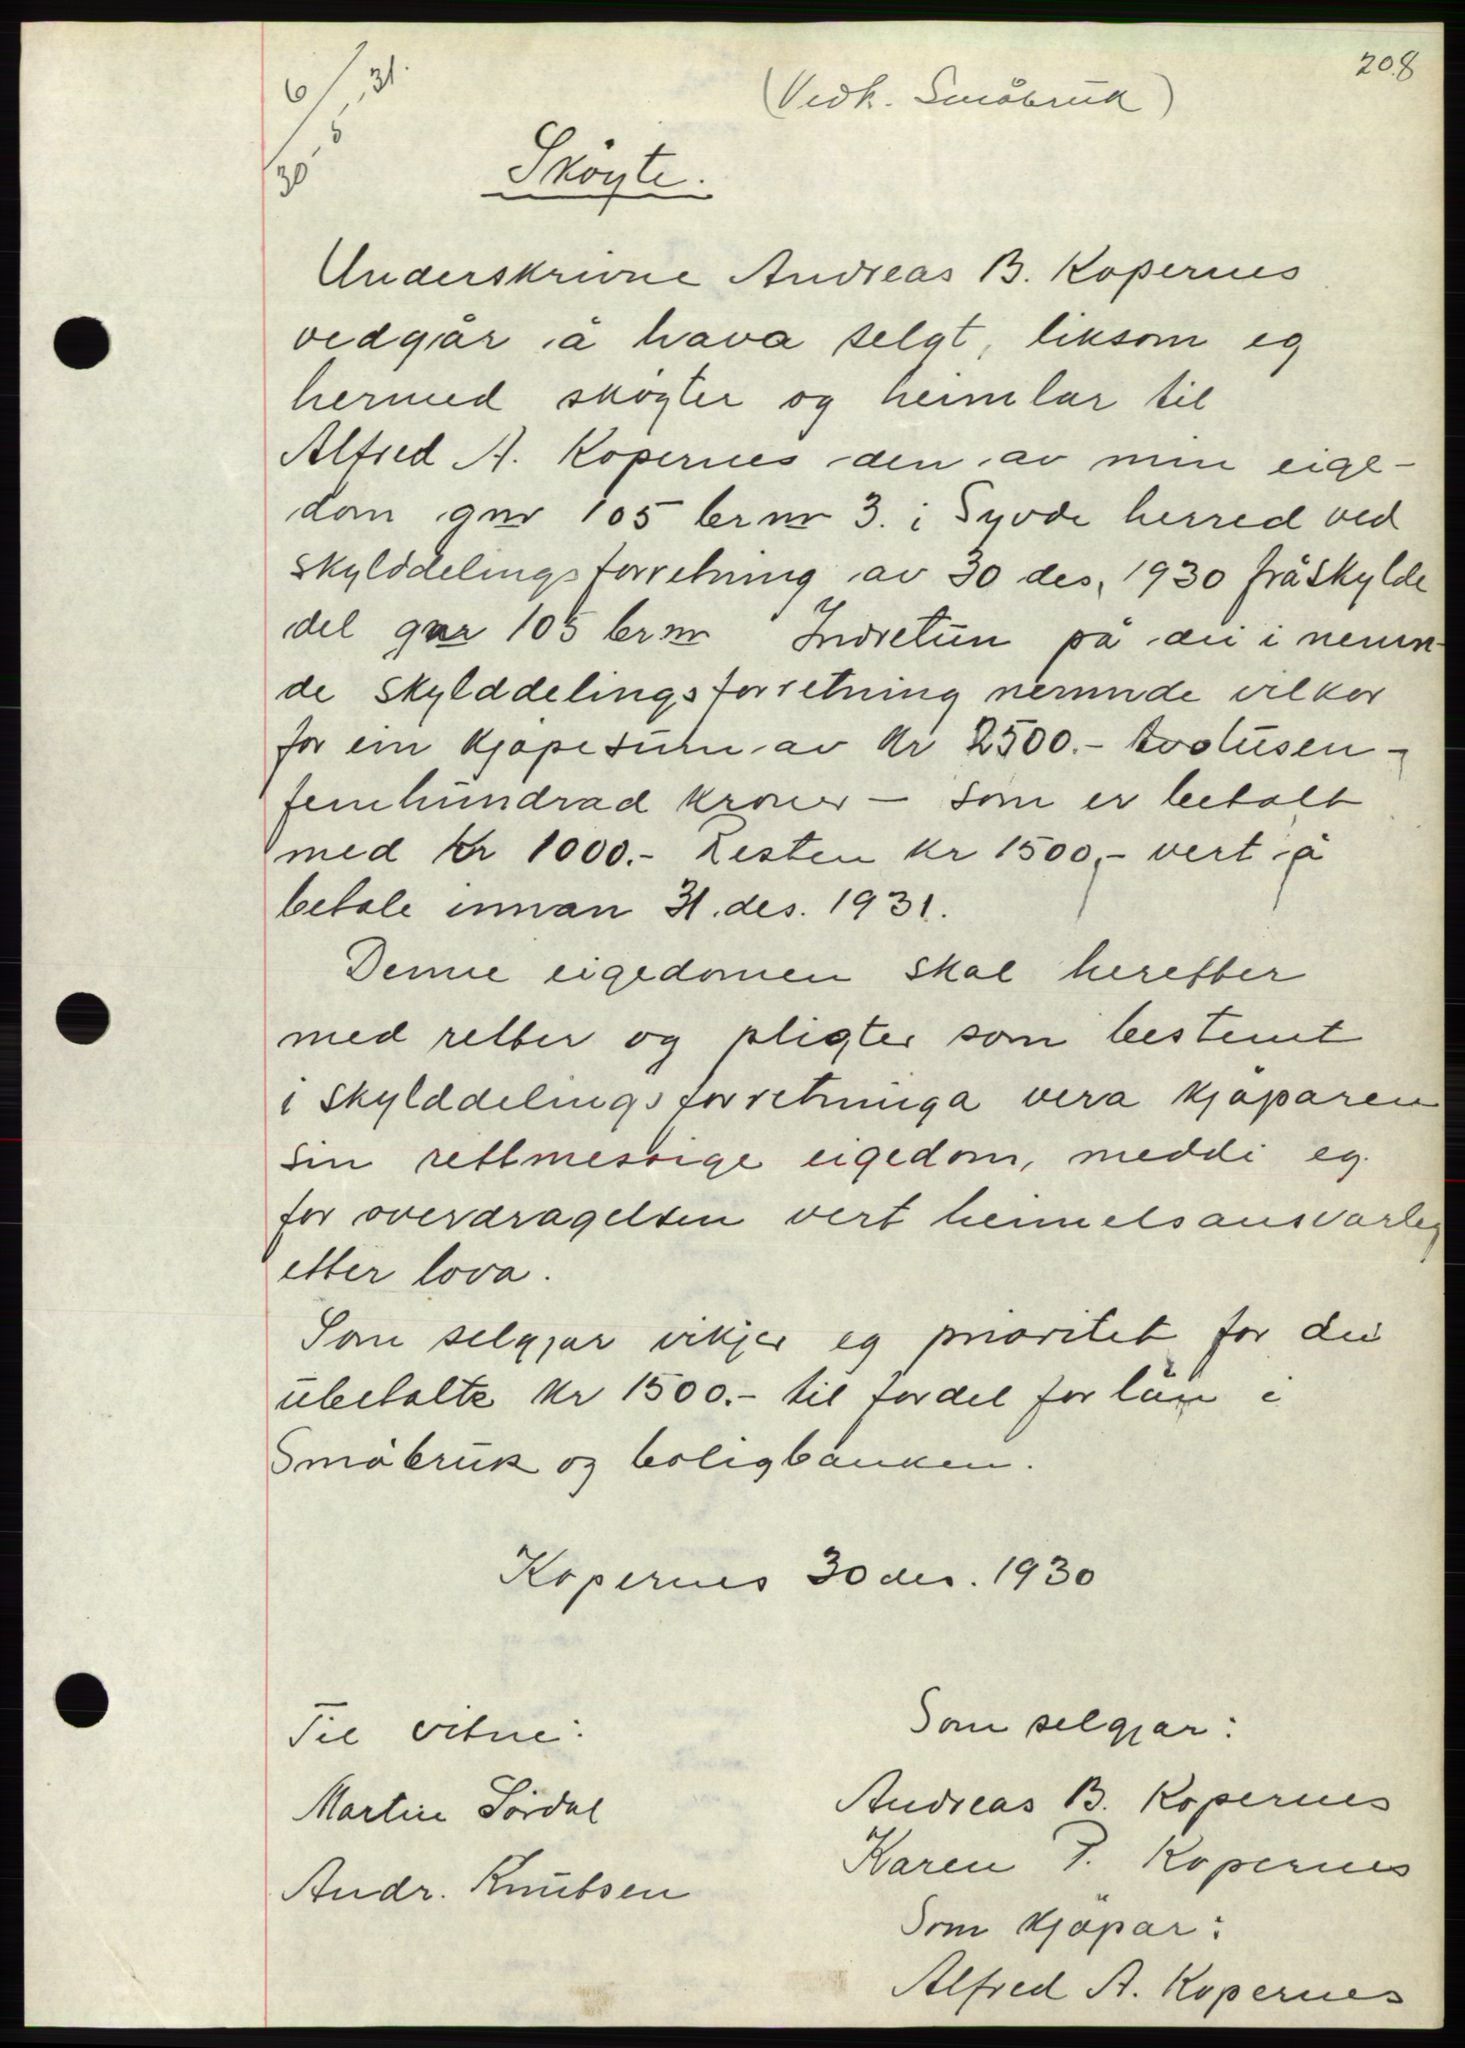 208
6/5.31.
30
(Vedk. Småbruk)
Sköyte.
Underskrivne Andreas B. Kopernes
vedgår å hava selgt, liksom eg
hermed sköyter og heimlar til
Alfred A. Kopernes den av min eige-
dom gnr 105 brnr 3. i Syvde herred ved
skylddelingsforretning av 30 des, 1930 fråskylde
del gnr 105 brnr Indretun på dei i nemn-
de skylddelingsforretning nemnde vilkor
for ein kjöpesum av kr 2500.- tvotusen-
femhundrad kroner - som er betalt
med kr 1000.- Resten kr 1500,- vert å
betale innan 31. des. 1931.
Denne eigedomen skal herefter
med retter og pligter som bestemt
i skylddelingsforretninga vera kjöparen
sin rettmessige eigedom, meddi eg
for overdragelsen vert heimelsansvarleg
etter lova.
Som selgjar vikjer eg prioritet for dei
ubetalte kr 1500.- til fordel for lån i
Småbruk og boligbanken.
Kopernes 30 des. 1930
Til vitne:
Martin Sørdal
Andr. Knutsen
Som selgjar:
Andreas B. Kopernes
Karen P. Kopernes
Som kjöpar:
Alfred A. Kopernes